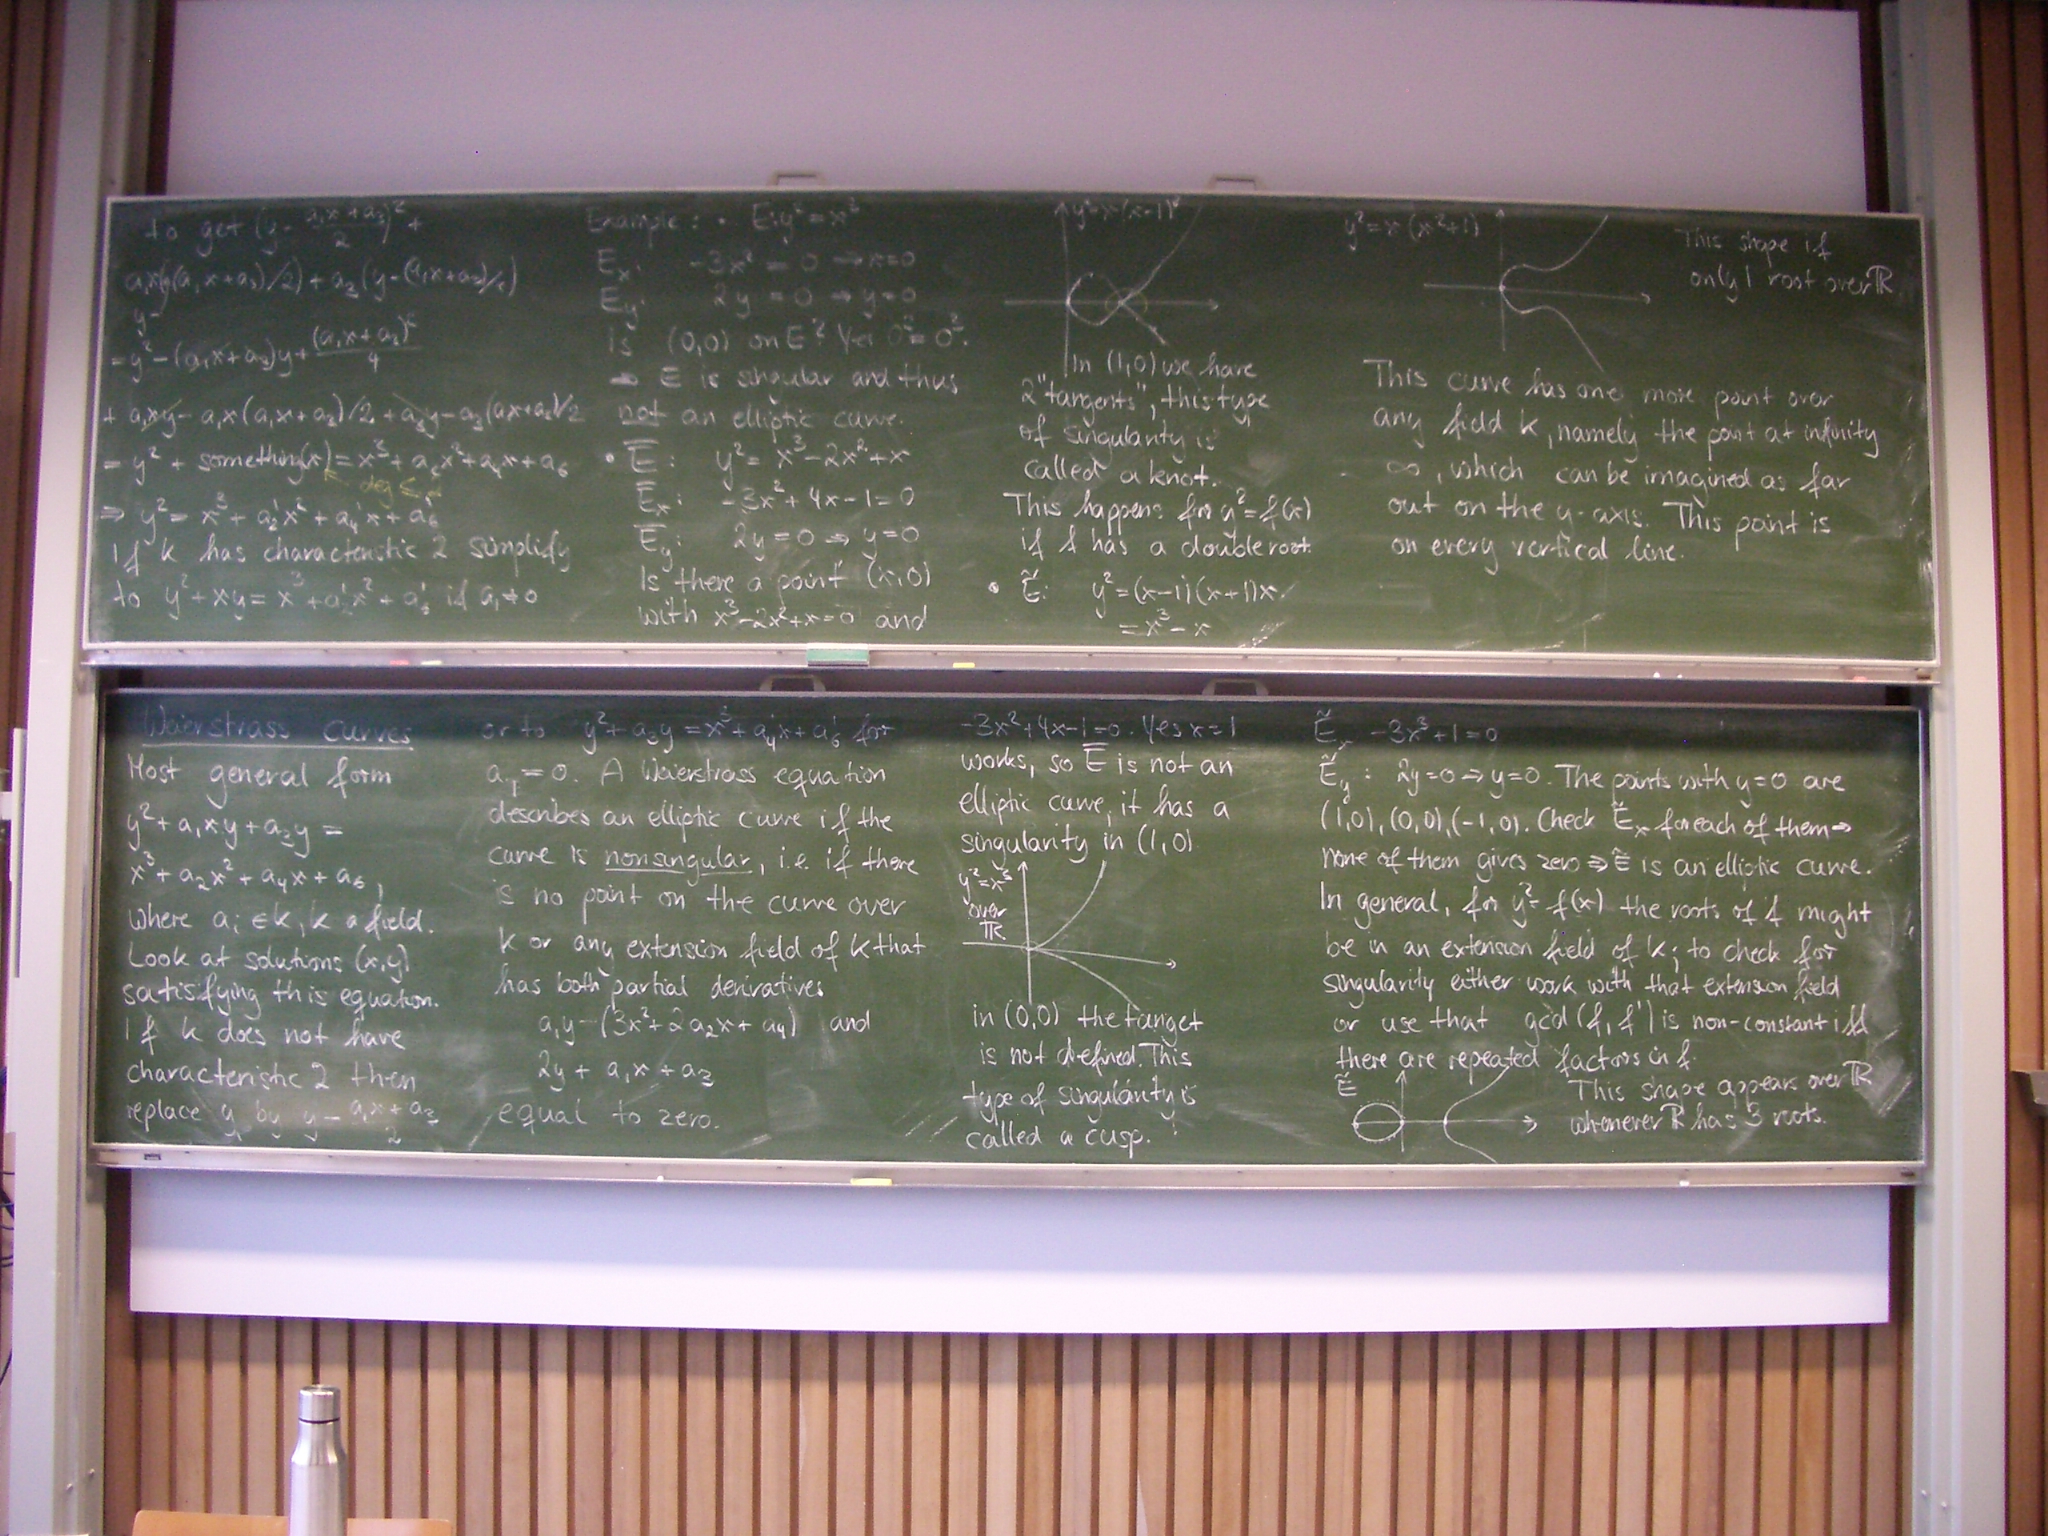 Weierstrass Curves
Most general form
y² + a₁xy + a₃y =
x³ + a₂x² + a₄x + a₆,
where aᵢ ∈ k, k a field.
Look at solutions (x,y)
satisfying this equation.
If k does not have
characteristic 2 then
replace y by y - (a₁x + a₃)/2
to get (y - (a₁x + a₃)/2)² +
a₁x(y-(a₁x+a₃)/2) + a₃(y-(a₁x+a₃)/2)
= y² - (a₁x+a₃)y + (a₁x+a₃)²/4
+ a₁xy - a₁x(a₁x+a₃)/2 + a₃y - a₃(a₁x+a₃)/2
= y² + something(x) = x³ + a₂x² + a₄x + a₆
deg ≤ 2
⇒ y² = x³ + a₂'x² + a₄'x + a₆'
If k has characteristic 2 simplify
to y² + xy = x³ + a₂'x² + a₆' if a₁ ≠ 0
or to y² + a₃y = x³ + a₄'x + a₆' for
a₁ = 0. A Weierstrass equation
describes an elliptic curve if the
curve is nonsingular, i.e. if there
is no point on the curve over
k or any extension field of k that
has both partial derivatives
a₁y - (3x² + 2a₂x + a₄) and
2y + a₁x + a₃
equal to zero.
Example: • E: y² = x³
Eₓ: -3x² = 0 ⇒ x=0
E_y: 2y = 0 ⇒ y=0
Is (0,0) on E? Yes 0² = 0³.
⇒ E is singular and thus
not an elliptic curve.
• Ē: y² = x³ - 2x² + x
Ēₓ: -3x² + 4x - 1 = 0
Ē_y: 2y = 0 ⇒ y = 0
Is there a point (x,0)
with x³ - 2x² + x = 0 and
-3x² + 4x - 1 = 0. Yes x = 1
works, so Ē is not an
elliptic curve, it has a
singularity in (1,0)
y² = x³
over
ℝ
in (0,0) the tanget
is not defined. This
type of singularity is
called a cusp.
y² = x(x-1)²
In (1,0) we have
2 "tangents", this type
of singularity is
called a knot.
This happens for y² = f(x)
if f has a double root.
• Ẽ: y² = (x-1)(x+1)x
= x³ - x
Ẽₓ -3x³ + 1 = 0
Ẽ_y: 2y = 0 ⇒ y = 0. The points with y=0 are
(1,0), (0,0), (-1,0). Check Ẽₓ for each of them ⇒
none of them gives zero ⇒ Ẽ is an elliptic curve.
In general, for y² = f(x) the roots of f might
be in an extension field of k; to check for
singularity either work with that extension field
or use that gcd(f, f') is non-constant iff
there are repeated factors in f.
Ẽ
This shape appears over ℝ
whenever ℝ has 3 roots.
y² = x(x²+1)
This shape if
only 1 root over ℝ
This curve has one more point over
any field k, namely the point at infinity
∞, which can be imagined as far
out on the y-axis. This point is
on every vertical line.